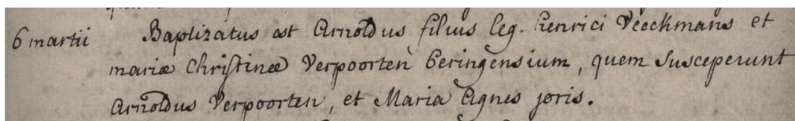 6 martii Baptizatus est Arnoldus filius leg. Henrici Veeckmans et
mariæ Christinæ Verpoorten Beringensium, quem susceperunt
Arnoldus Verpoorten, et Maria Agnes joris.